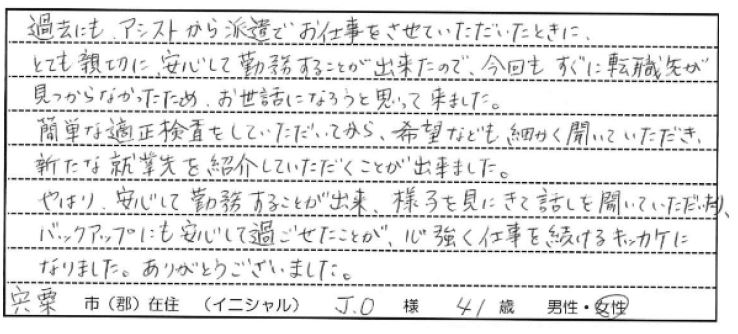 過去にも、アシストから派遣でお仕事をさせていただいたときに、
とても親切に、安心して勤務することが出来たので、今回もすぐに転職先が
見つからなかったため、お世話になろうと思って来ました。
簡単な適正検査をしていただいてから、希望なども細かく聞いていただき、
新たな就業先を紹介していただくことが出来ました。
やはり、安心して勤務することが出来、様子を見にきて話しを聞いていただいたり、
バックアップにも安心して過ごせたことが、心強く仕事を続けるキッカケに
なりました。ありがとうございました。
宍粟 市（郡）在住 （イニシャル） J.O 様 41 歳 男性・女性